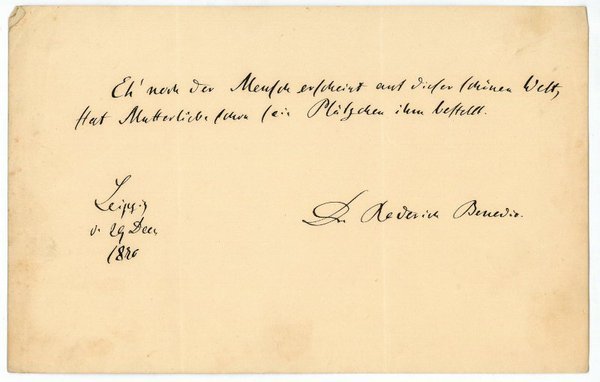 Eh' noch der Mensch erscheint auf dieser schönen Welt,
Hat Mutterliebe schon sein Plätzchen ihm bestellt.
Leipzig
d. 29 Dec
Dr. Roderich Benedix.